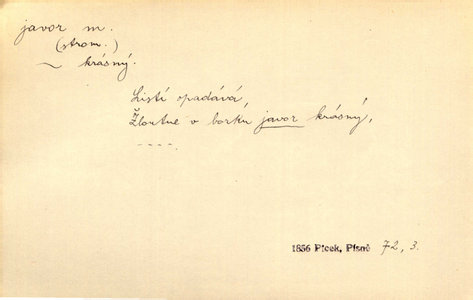 javor m.
(strom.)
~ krásný.
Listí opadává,
Žloutne v borku javor krásný,
----.
1856 Picek, Písně 72, 3.